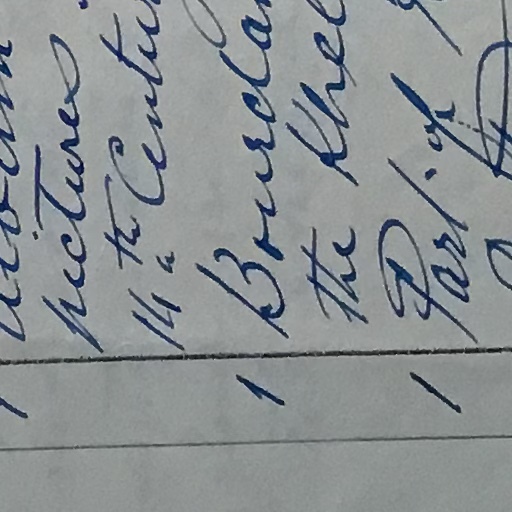 1 Album
pictures.
14th Centu
1 Bourdan
the Khel
1 Part of